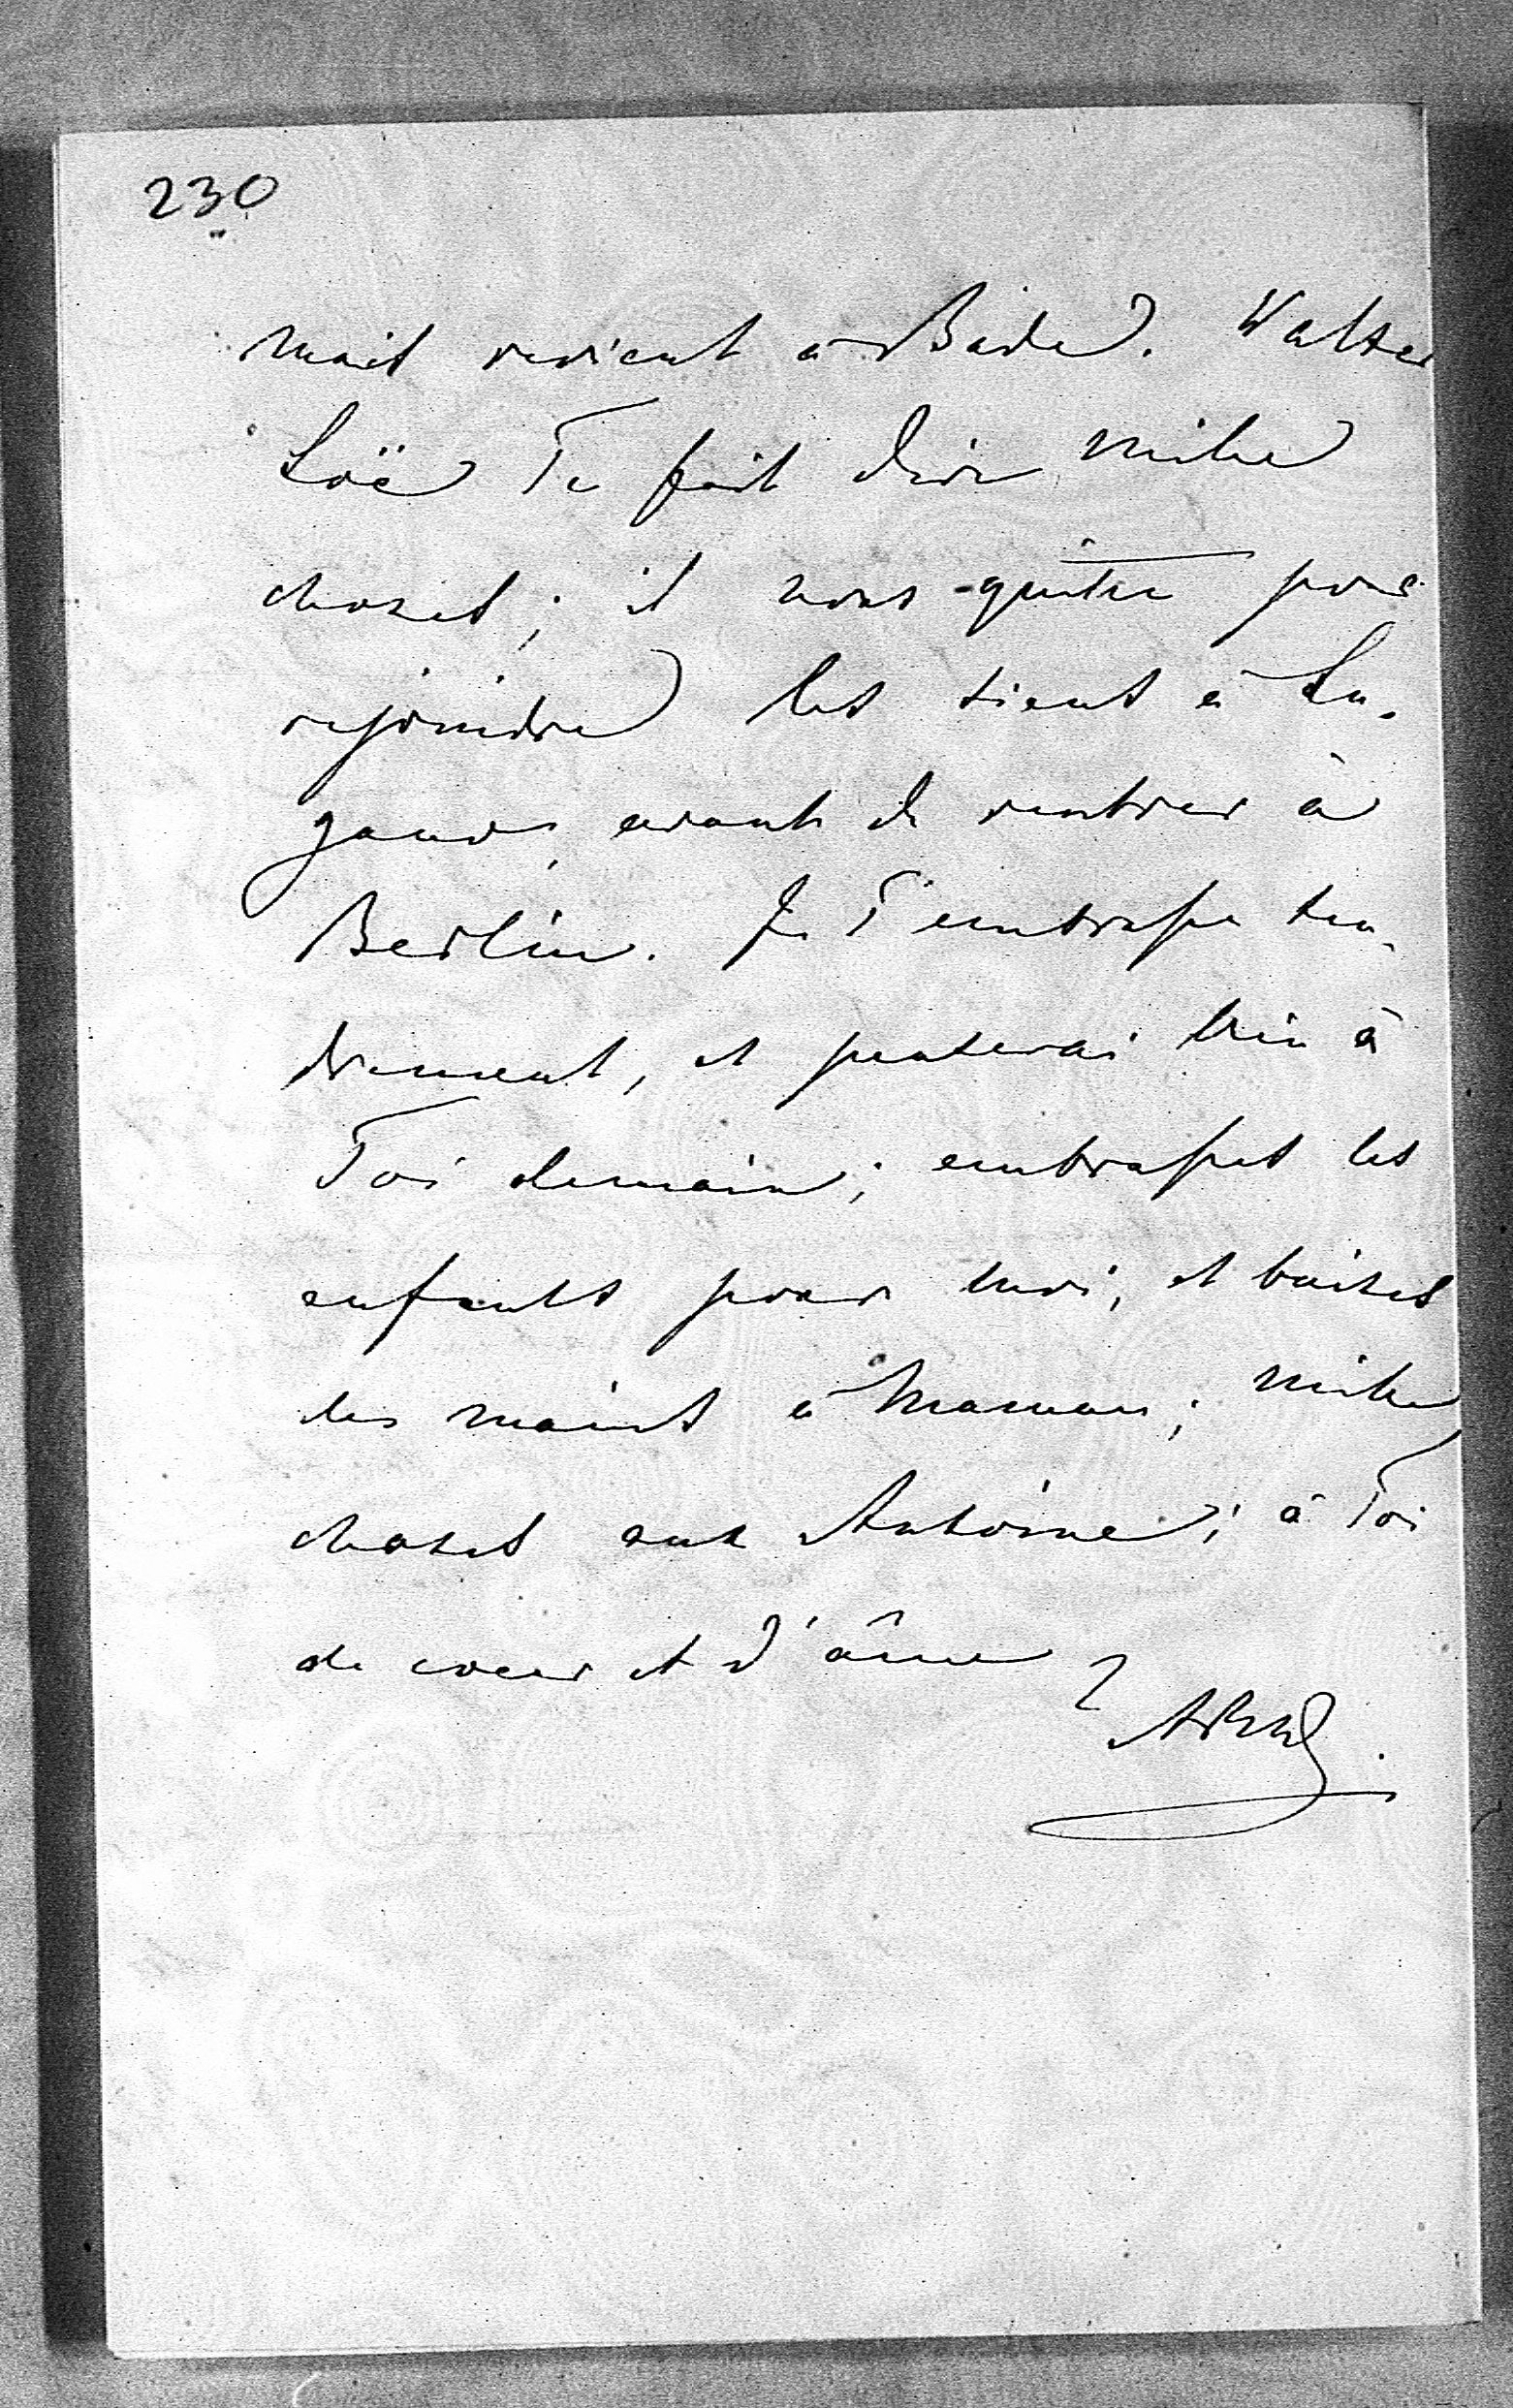 230
mais revient à Bade. Walter
Loë Te fait dire mille
choses; il nous quitte pour
rejoindre les siens à Lu-
gano, avant de rentrer à
Berlin. Je T'embrasse ten-
drement, et penserai bien à
Toi demain; embrasses les
enfants pour moi, et baises
les mains à Maman; mille
choses aux Antoine; à Toi
de coeur et d'âme